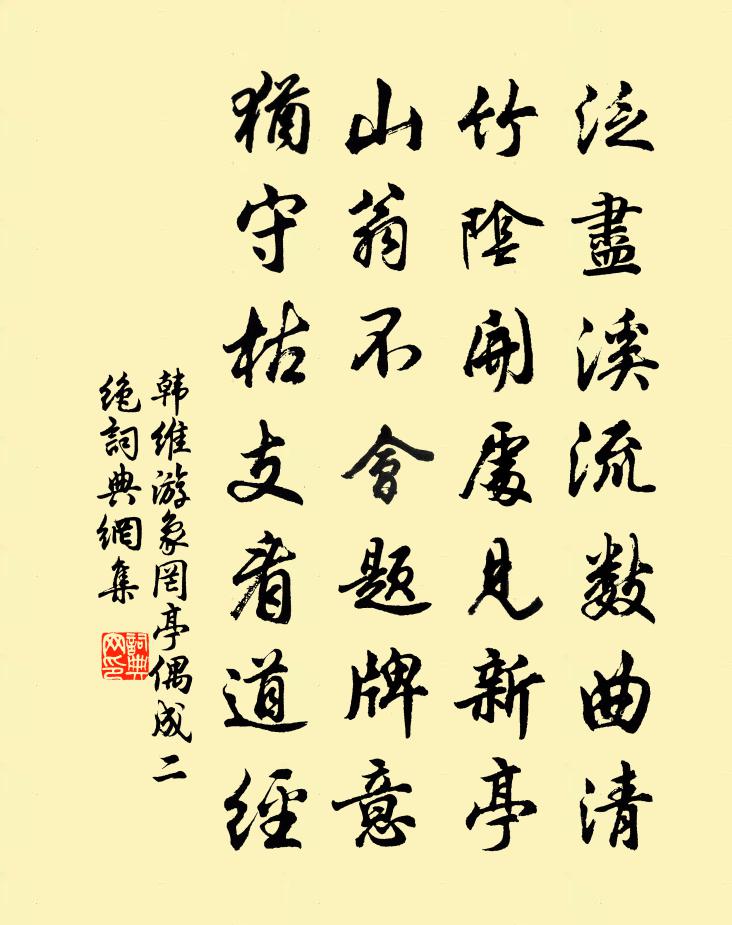 泛盡溪流數曲清
竹陰開處見新亭
山翁不會題牌意
猶守枯支看道經
韩維游象罔亭偶成二
絶詞典網集
詞典
网印